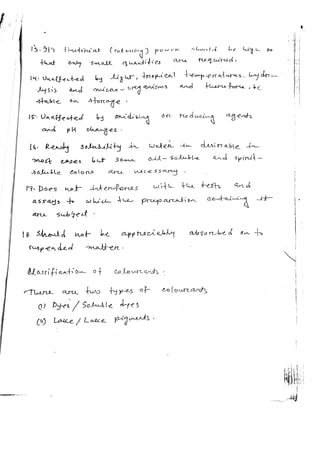 13. Its tinctorial (colouring) power should be high so
that only small quantities are required.
14. Unaffected by light, tropical temperatures, hydro-
lysis and micro-organisms and therefore, be
stable on storage.
15. Unaffected by oxidising or reducing agents
and pH changes.
16. Ready solubility in water is desirable in
most cases but some oil-soluble and spirit-
soluble colors are necessary.
17. Does not interferes with the tests and
assays to which the preparation containing it
are subject.
18. Should not be appreciably absorbed on to
suspended matter.
Classification of colourants:
There are two types of colourants
(1) Dyes / Soluble dyes
(2) Lake / Lake pigments.